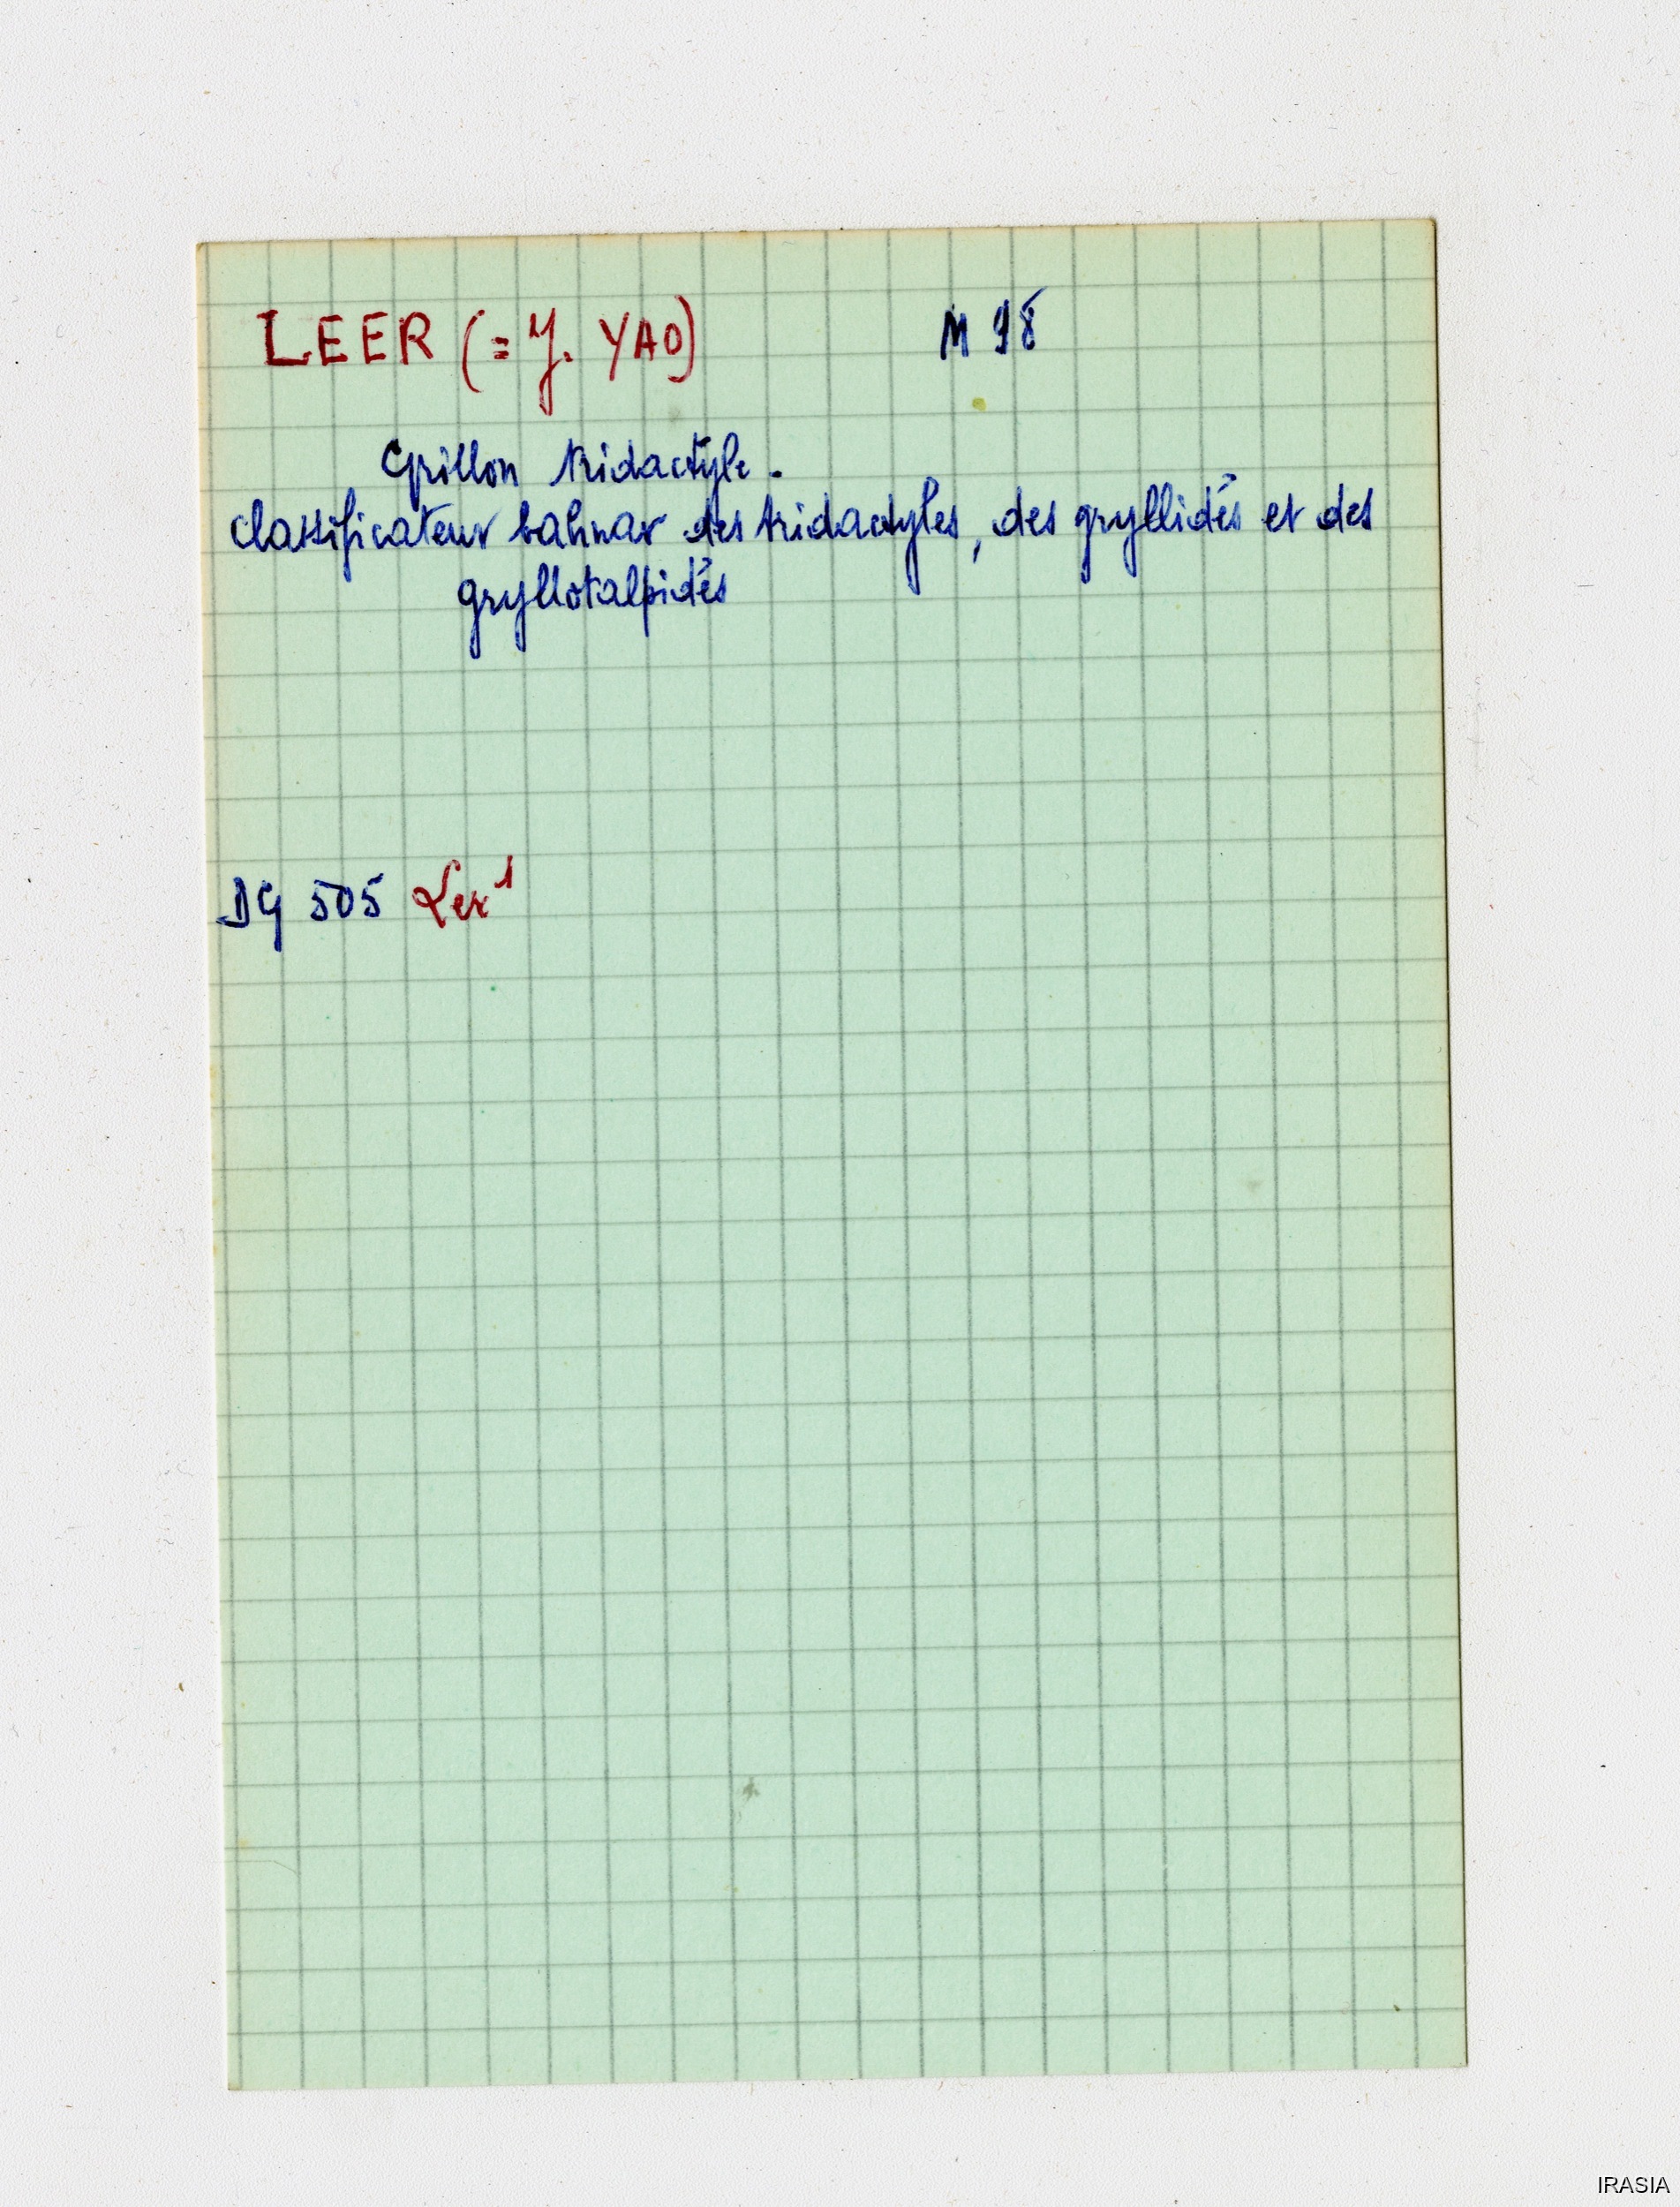 LEER (= J. YAO) M 98
Grillon tridactyle.
classificateur bahnar des tridactyles, des gryllidés et des
gryllotalpidés
DG 505 Ler¹
IRASIA